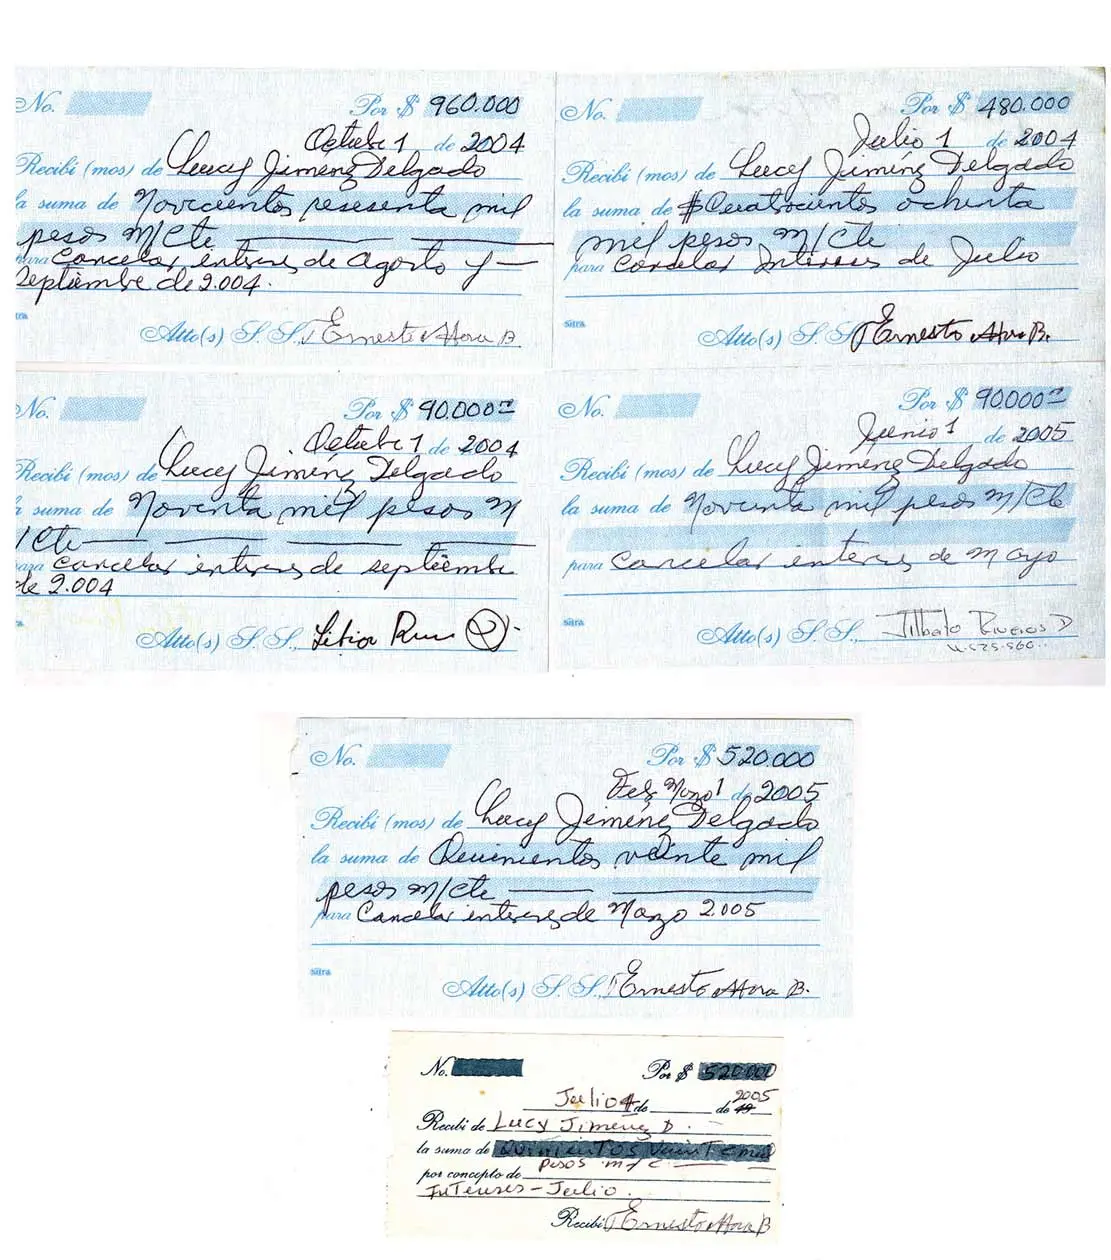 No. Por $ 960.000
Octubre 1 de 2004
Recibí (mos) de Lucy Jiménez Delgado
la suma de Novecientos sesenta mil
pesos M/Cte
para Cancelar interes de Agosto y
Septiembre de 2.004.
Atto(s) S. S., Ernesto Mora B
No. Por $ 480.000
Julio 1 de 2004
Recibí (mos) de Lucy Jiménez Delgado
la suma de $Cuatrocientos ochenta
mil pesos M/Cte
para Cancelar Intereses de Julio
sura
Atto(s) S. S. Ernesto Mora B.
No. Por $ 90.000
Octubre 1 de 2004
Recibí (mos) de Lucy Jiménez Delgado
la suma de Noventa mil pesos M
/Cte
para Cancelar interes de septiembre
de 2.004
Atto(s) S. S.,
No. Por $ 90.000
Junio 1 de 2005
Recibí (mos) de Lucy Jiménez Delgado
la suma de Noventa mil pesos M/Cte
para Cancelar interes de Mayo
sura
Atto(s) S. S., Jilberto Riveros D
No. Por $ 520.000
Marzo 1 de 2005
Recibí (mos) de Lucy Jiménez Delgado
la suma de Quinientos veinte mil
pesos M/Cte
para Cancelar interes de Marzo 2.005
sura
Atto(s) S. S., Ernesto Mora B.
No. Por $ 520.000
Julio 1 de de 2005
Recibí de Lucy Jiménez D.
la suma de Quinientos Veinte mil
por concepto de pesos m/c
Intereses - Julio.
Recibí Ernesto Mora B